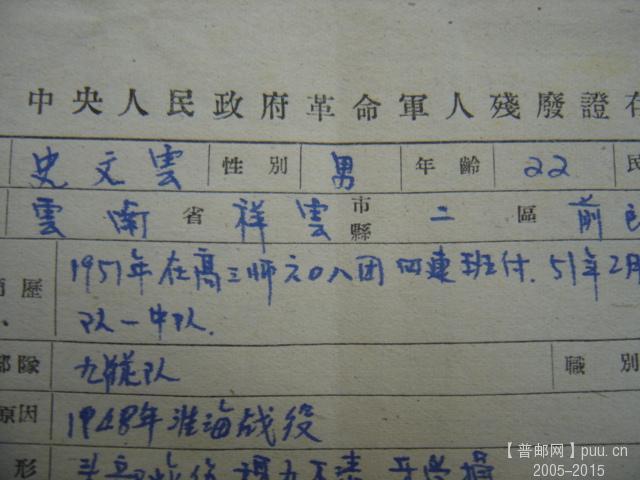 中央人民政府革命軍人殘廢證存
史文雲 性別 男 年齡 22 民
雲南省祥雲市縣二區前
歷 1951年在高三师六〇八团四連班付.51年2月
队一中队.
部隊 九龍队 職別
原因 1948年淮海战役
形
【普邮网】puu.cn
2005-2015